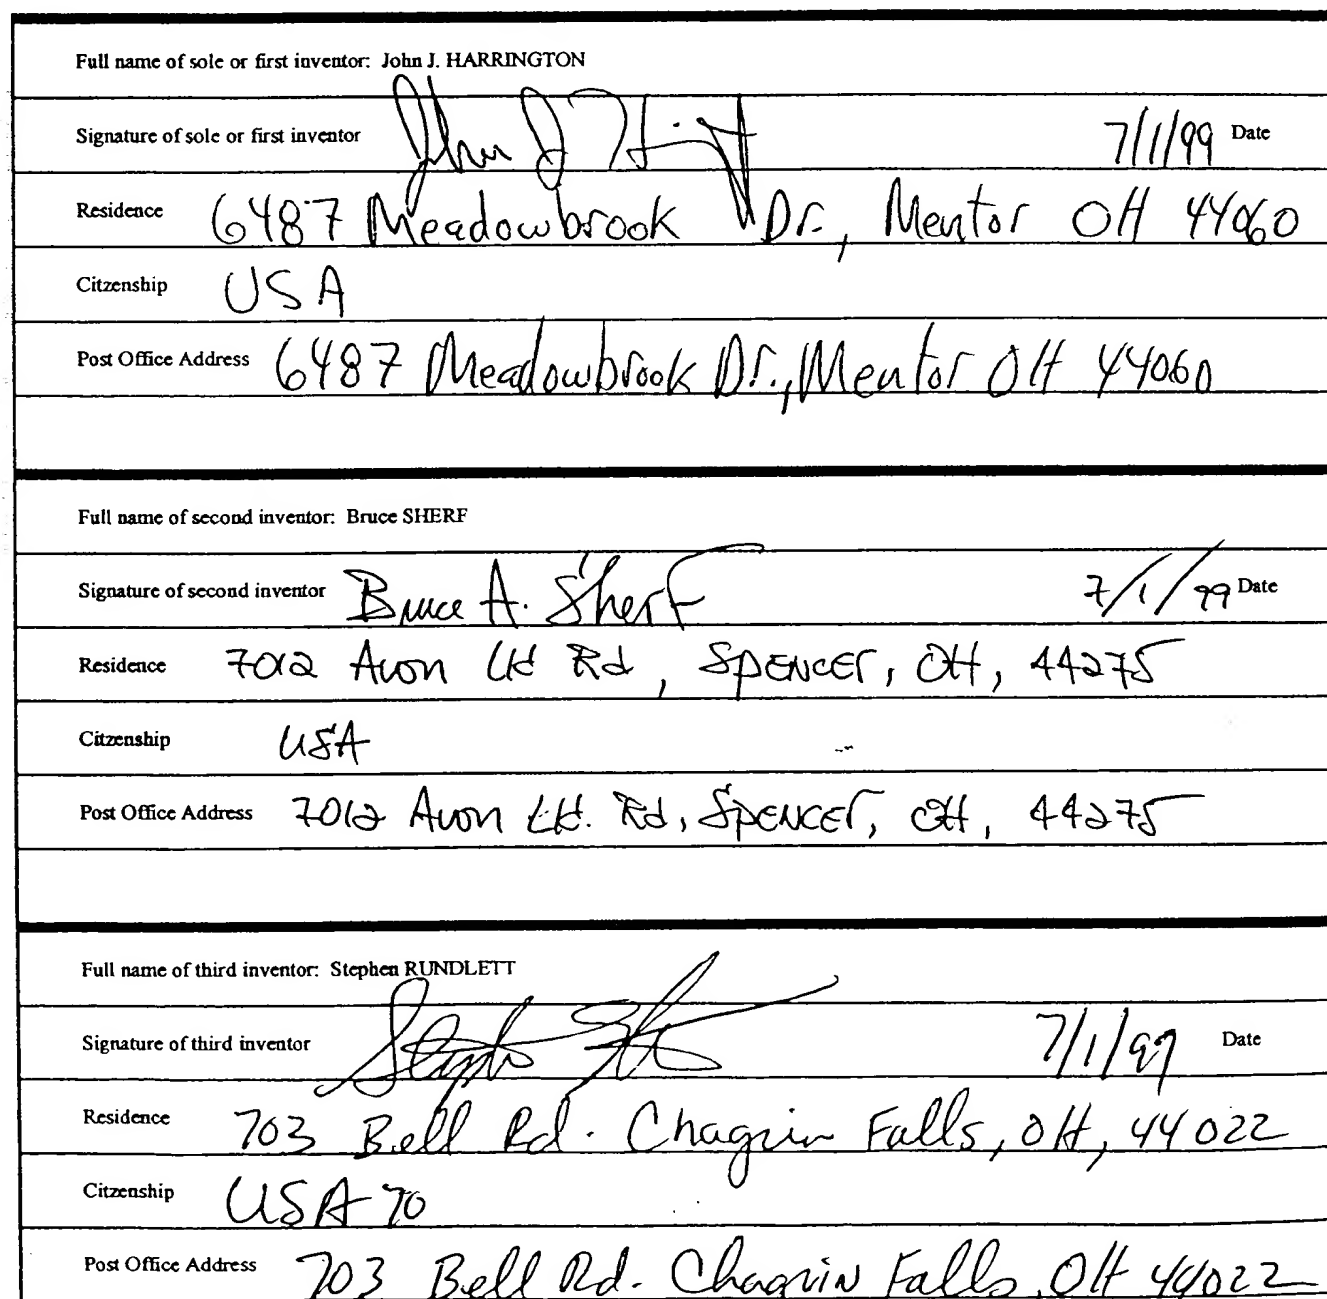 Full name of sole or first inventor: John J. HARRINGTON
Signature of sole or first inventor John J 7/1/99 Date
Residence 6487 Meadowbrook Dr., Mentor OH 44060
Citzenship USA
Post Office Address 6487 Meadowbrook Dr., Mentor OH 44060
Full name of second inventor: Bruce SHERF
Signature of second inventor Bruce A. Sherf 7/1/99 Date
Residence 7012 Avon Ld Rd, SPENCER, OH, 44275
Citzenship USA
Post Office Address 7012 Avon Ld. Rd, SPENCER, OH, 44275
Full name of third inventor: Stephen RUNDLETT
Signature of third inventor 7/1/99 Date
Residence 703 Bell Rd. Chagrin Falls, OH, 44022
Citzenship USA
Post Office Address 703 Bell Rd. Chagrin Falls, OH 44022